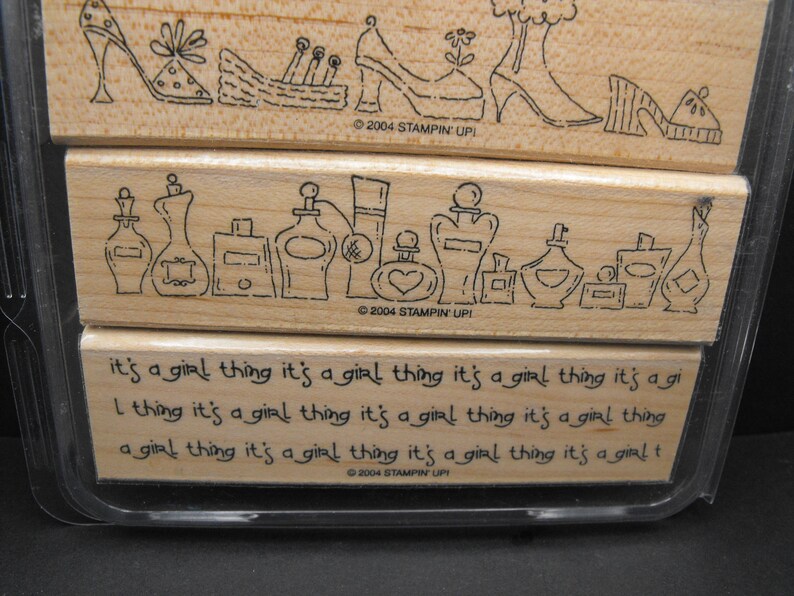 © 2004 STAMPIN' UP!
© 2004 STAMPIN' UP!
it's a girl thing it's a girl thing it's a girl thing it's a gi
l thing it's a girl thing it's a girl thing it's a girl thing
a girl thing it's a girl thing it's a girl thing it's a girl t
© 2004 STAMPIN' UP!